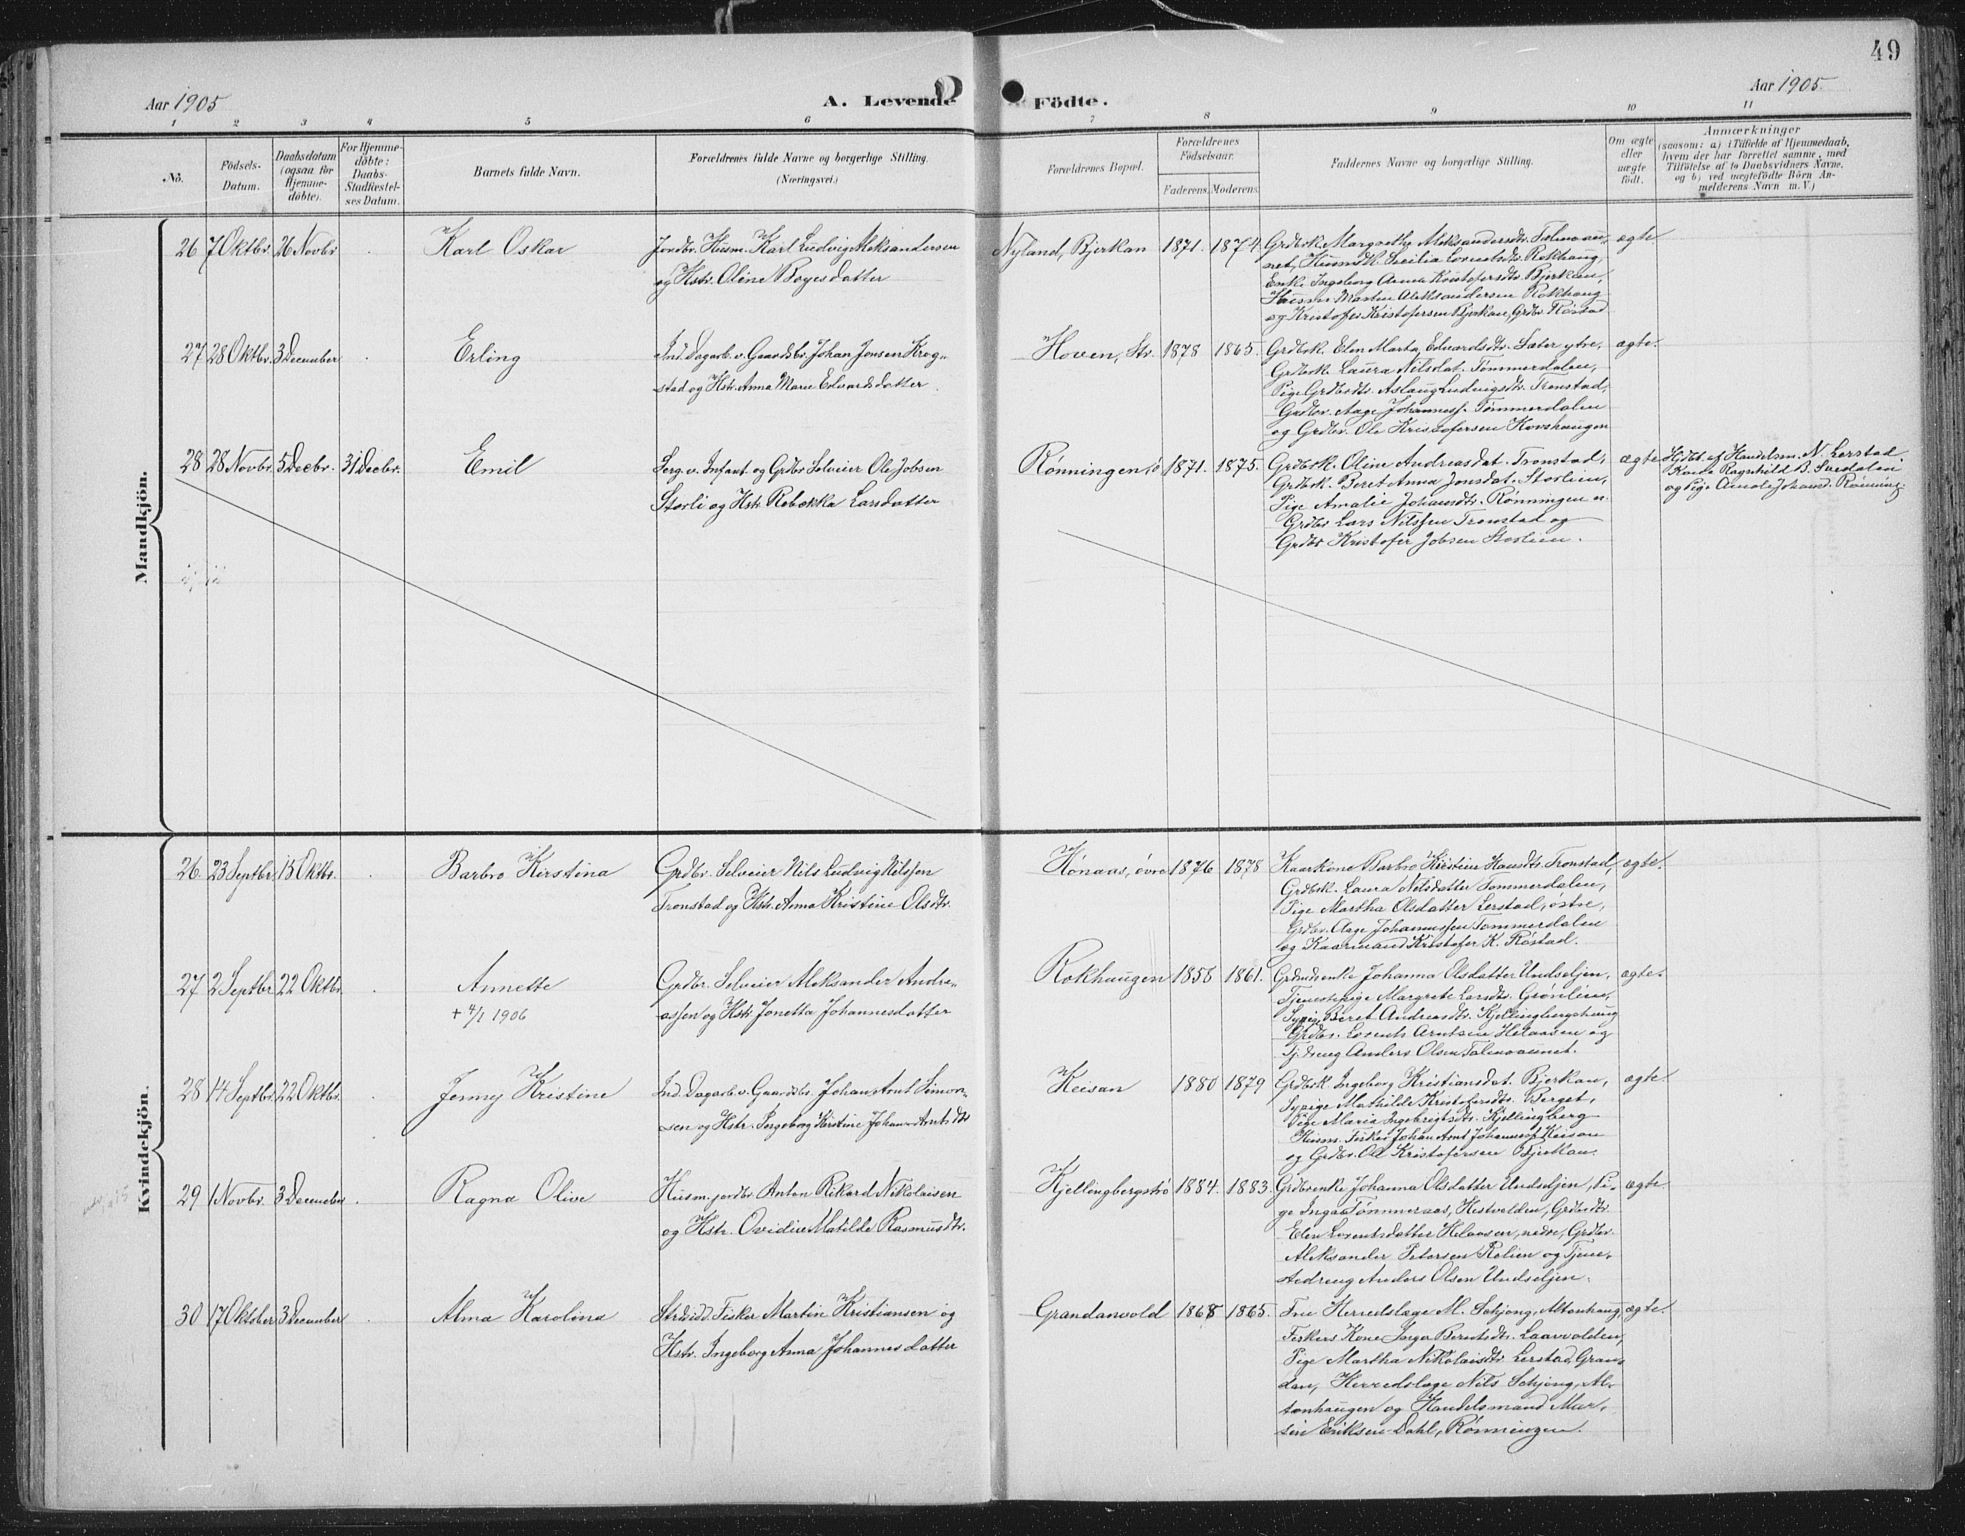 49
Aar 1905
A. Levende Födte.
Aar 1905.
1 2 3 4 5 6 7 8 9 10 11
No.
Födsels-
Datum.
Daabsdatum
(ogsaa for
Hjemme-
døbte).
For Hjemme-
döbte:
Daabs-
Stadfæstel-
ses Datum.
Barnets fulde Navn.
Forældrenes fulde Navne og borgerlige Stilling.
(Næringsvei.)
Forældrenes Bopæl.
Forældrenes
Födselsaar.
Faderens. Moderens.
Faddernes Navne og borgerlige Stilling.
Om ægte
eller
uægte
födt.
Anmærkninger
(saasom: a) i Tilfælde af Hjemmedaab,
hvem der har forrettet samme, med
Tilföielse af to Daabsvidners Navne,
og b) ved uægtefödte Börn An-
melderens Navn m. V.)
Mandkjön.
26 7 Oktbr. 26 Novbr Karl Oskar
Jordbr. Husm. Karl Ludvig Aleksandersen
og Hstr. Oline Boyesdatter
Nyland, Bjerkan 1871. 1874.
Grdbrk. Margrethe Aleksandersdtr. Talmoau-
net, Husmdk. Secilia Lorentsdtr. Rokhaug,
Enke Ingeborg Anna Kristofersdtr. Bjerkan,
Husm Martin Aleksandersen Rokhaug
og Kristofer Kristofersen Bjerkan, Grdbr. Røstad
ægte.
27 28 Oktbr. 3 December Erling
Ind. Dagarb. v. Gaardsbr. Johan Jonsen Krog-
stad og Hstr. Anna Marie Edvardsdatter.
Hoven, Str. 1878 1865.
Grdbrk. Elen Marta Edvardsdtr. Sæter ytre,
Grdbrk. Laura Nilsdat. Tømmerdalen,
Pige Grdbrdtr. Aslaug Ludvigsdtr. Tronstad,
Grdbr. Aage Johanness. Tømmerdalen
og Grdbr. Ole Kristofersen Hovshaugen
ægte.
28 28 Novbr. 5 Decbr. 31 Decbr. Emil
Serg. v. Infant. og Grdbr Selveier Ole Jobsen
Storli og Hstr. Rebekka Larsdatter
Rønningen, ø 1871. 1875.
Grdbrk. Oline Andreasdat. Tronstad,
Grdbrk. Beret Anna Jonsdat. Storlien,
Pige Amalie Johansdtr. Rønningen n.
Grdbr Lars Nilssen Tronstad og
Grdbr Kristofer Jobsen Storlien.
ægte
Hjdbt. af Handelsm. N. Lerstad
Kone Ragnhild B. Sædalen
og Pige Amalie Johansd. Rønning.
Kvindekjön.
26 23 Septbr 15 Oktbr. Barbro Kirstina
Grdbr. Selveier Nils Ludvig Nilssen
Tronstad og Hstr. Anna Kristine Olsdtr.
Hønaas, øvre 1876 1878
Kaarkone Barbro Kristine Hansdtr. Tronstad,
Grdbrk. Laura Nilsdatter Tømmerdalen,
Pige Martha Olsdatter Lerstad, østre,
Grdbr. Aage Johannessen Tømmerdalen
og Kaarmand Kristofer K. Røstad.
ægte.
27 2 Septbr 22 Oktbr. Annette
+ 4/1 1906
Grdbr. Selveier Aleksander Andre-
assen og Hstr. Jonetta Johannesdatter
Rokhaugen 1858 1861.
Grdmdsenke Johanna Olsdatter Undseljen,
Tjenestepige Margrete Larsdtr. Grønlien,
Sypig. Beret Andreasdtr. Kjellingbergshaug
Grdbr. Lorents Arntsen Helaasen og
Tj.dreng Anders Olsen Talmoaunet.
ægte.
28 14 Septbr. 22 Oktbr. Jenny Kristine
Ind. Dagarb. v. Gaardsbr. Johan Arnt Simon-
sen og Hstr. Ingeborg Kirstine Johan-Arntsdtr
Keisan 1880 1879
Grdbrk. Ingeborg Kristiansdat. Bjerkan,
Sypige Mathilde Kristofersdtr. Berget,
Pige Maria Ingebrigtsdtr. Kjellingberg
Husm. Fisker Johan Arnt Johanness. Keisan
og Grdbr. Ole Kristofersen Bjerkan.
ægte.
29 1 Novbr. 3 December Ragna Olive
Husm. jordbr. Anton Rikard Nikolaisen
og Hstr. Ovidie Matilde Rasmusdtr.
Kjellingbergstrø 1884. 1883.
Grdbrenke Johanna Olsdatter Undseljen, Pi-
ge Inga Tømmeraas, Hestvolden, Grdmdtr.
Elen Lorentsdatter Helaasen, nedre, Grdbr.
Aleksander Petersen Rølien og Tjene-
stedreng Anders Olsen Undseljen.
ægte.
30 17 Oktober 3 December Alma Karolina
Strdsidd. Fisker Martin Kristiansen og
Hstr. Ingeborg Anna Johannesdatter
Grandanvold 1868 1865.
Fru Herredslæge M. Schjong, Altonhaug,
Fiskers Kone Inga Berntsdtr. Laavolden,
Pige Martha Nikolaisdtr Lerstad, Gran-
den, Herredslæge Nils Schjong, Al-
tonhaugen og Handelsmand Mar-
tin Eriksen Dahl, Rønningen.
ægte.